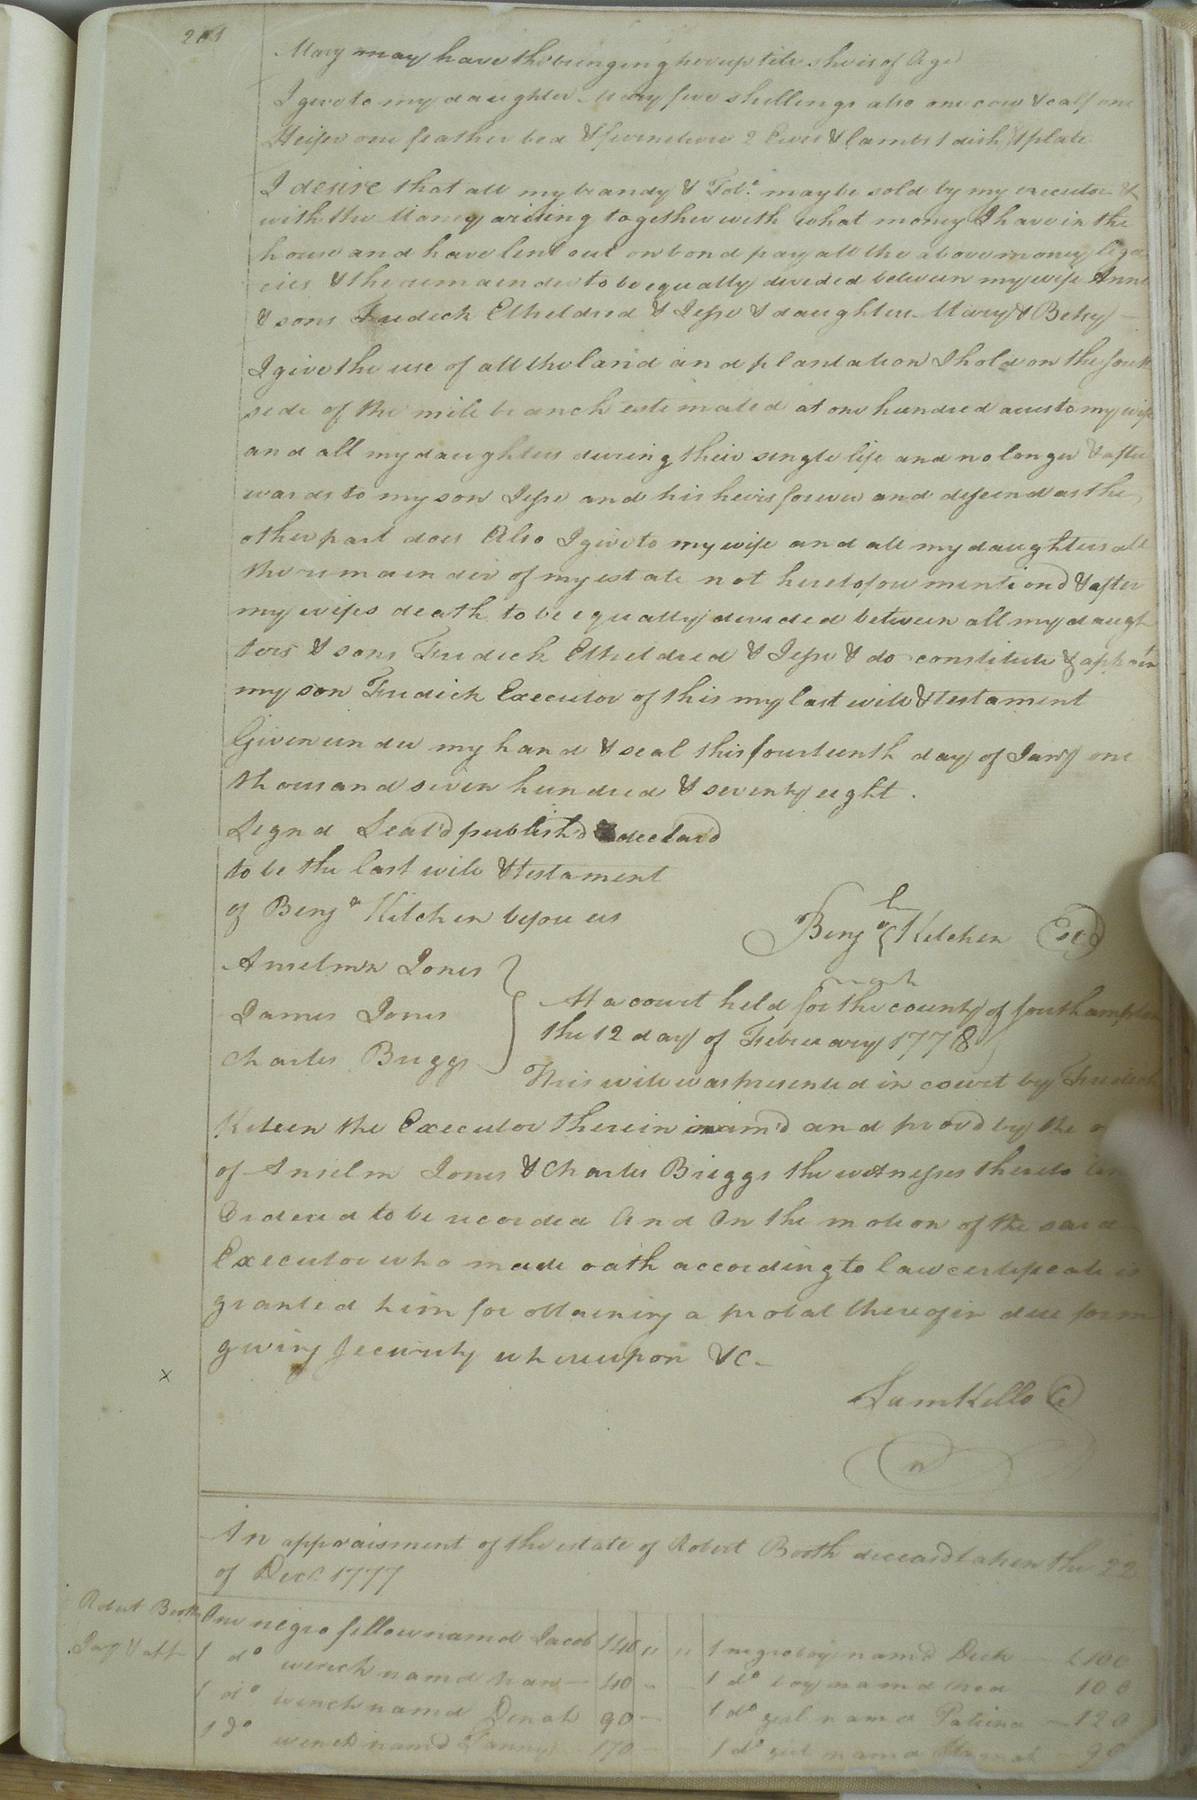 Mary may have the bringing her up till she is of Age
I give to my daughter Mary five shillings also one cow & calf one
Heifer one feather bed & furniture 2 Ewes & lambs 1 dish & plate
I desire that all my brandy & Tob.o may be sold by my executor &
with the Money arising together with what money I have in the
house and have lent out on bond pay all the above money lega
cies & the remainder to be equally devided between my wife Anne
& sons Fredick Etheldred & Jesse & daughters Mary & Betsy
I give the use of all the land and plantation I hold on the south
side of the mile branch estimated at one hundred acres to my wife
and all my daughters during their single life and no longer & after
wards to my son Jesse and his heirs forever and defend as the
other part does Also I give to my wife and all my daughters all
the remainder of my estate not heretofore mentiond & after
my wifes death to be equally devided between all my daugh
ters & sons Fredick Etheldred & Jesse & do constitute & appoin
my son Fredick Executor of this my last will & testament
Given under my hand & seal this fourteenth day of Jany one
thousand seven hundred & seventy eight.
Signd Seal'd publish'd & declard
to be the last will & testament
of Benja Kitchen before us
Benja Kitchen
mark
Anselm Jones
James Jones
Charles Briggs
At a court held for the county of Southampton
the 12 day of February 1778
This will was presented in court by Fredick
Kitchen the Executor therein nam'd and prov'd by the
of Anselm Jones & Charles Briggs the witnesses thereto and
Ordered to be recorded And On the motion of the said
Executor who made oath according to law certificate is
granted him for obtaining a probat thereof in due form
giving Security whereupon &c
Sam Kello C
An appraisment of the estate of Robert Booth deceasd taken the 22
of Decr 1777
Robert Booth
One negro fellow namd Jacob 140 " " 1 negro boy nam'd Dick £100
1 do wench namd 40 1 do boy namd 100
1 do wench namd Dinah 90 1 do girl namd 120
1 do wench nam'd Fanny 170 1 do girl namd 90